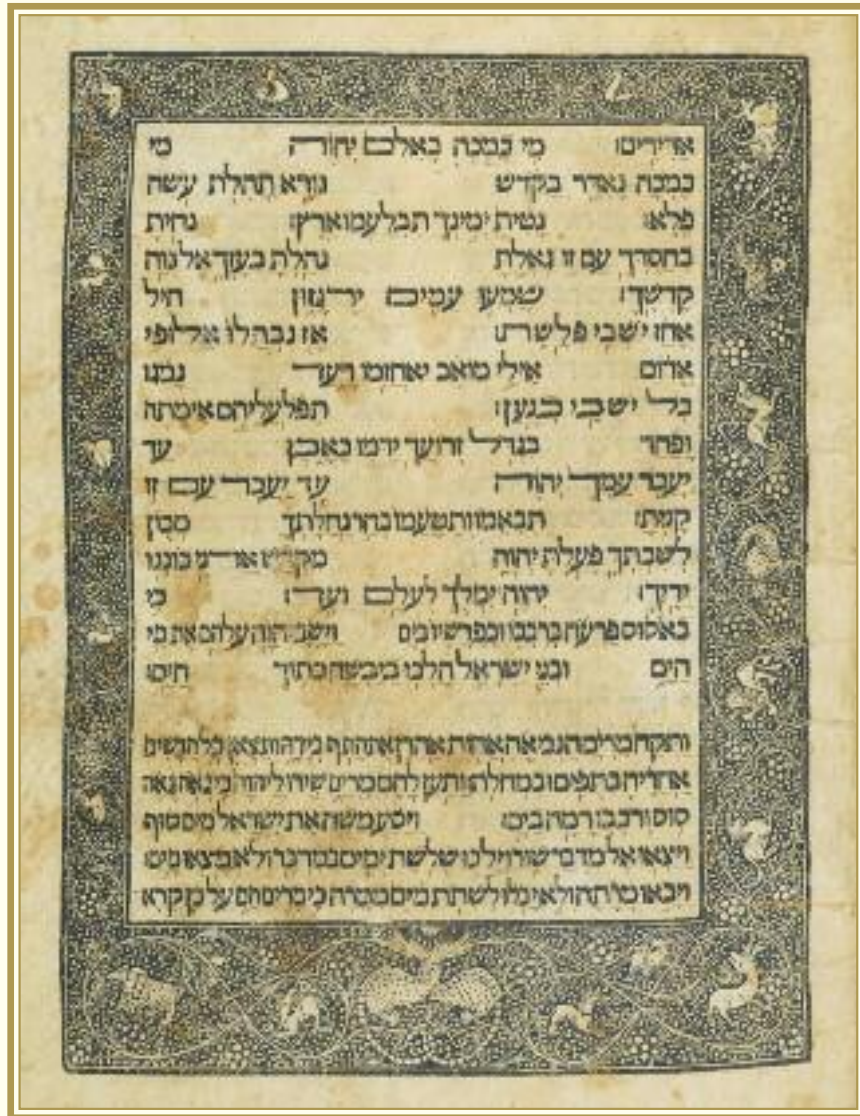 אדירים׃ מי כמכה באלם יהוה מי
כמכה נאדר בקדש נורא תהלת עשה
פלא׃ נטית ימינך תבלעמו ארץ׃ נחית
בחסדך עם זו גאלת נהלת בעזך אל נוה
קדשך׃ שמעו עמים ירגזון חיל
אחז ישבי פלשת׃ אז נבהלו אלופי
אדום אילי מואב יאחזמו רעד נמגו
כל ישבי כנען׃ תפל עליהם אימתה
ופחד בגדל זרועך ידמו כאבן עד
יעבר עמך יהוה עד יעבר עם זו
קנית׃ תבאמו ותטעמו בהר נחלתך מכון
לשבתך פעלת יהוה מקדש אדני כוננו
ידיך׃ יהוה ימלך לעלם ועד׃ כי
בא סוס פרעה ברכבו ובפרשיו בים וישב יהוה עלהם את מי
הים ובני ישראל הלכו ביבשה בתוך הים׃
ותקח מרים הנביאה אחות אהרן את התף בידה ותצאן כל הנשים
אחריה בתפים ובמחלת׃ ותען להם מרים שירו ליהוה כי גאה גאה
סוס ורכבו רמה בים׃ ויסע משה את ישראל מים סוף
ויצאו אל מדבר שור וילכו שלשת ימים במדבר ולא מצאו מים׃
ויבאו מרתה ולא יכלו לשתת מים ממרה כי מרים הם על כן קרא